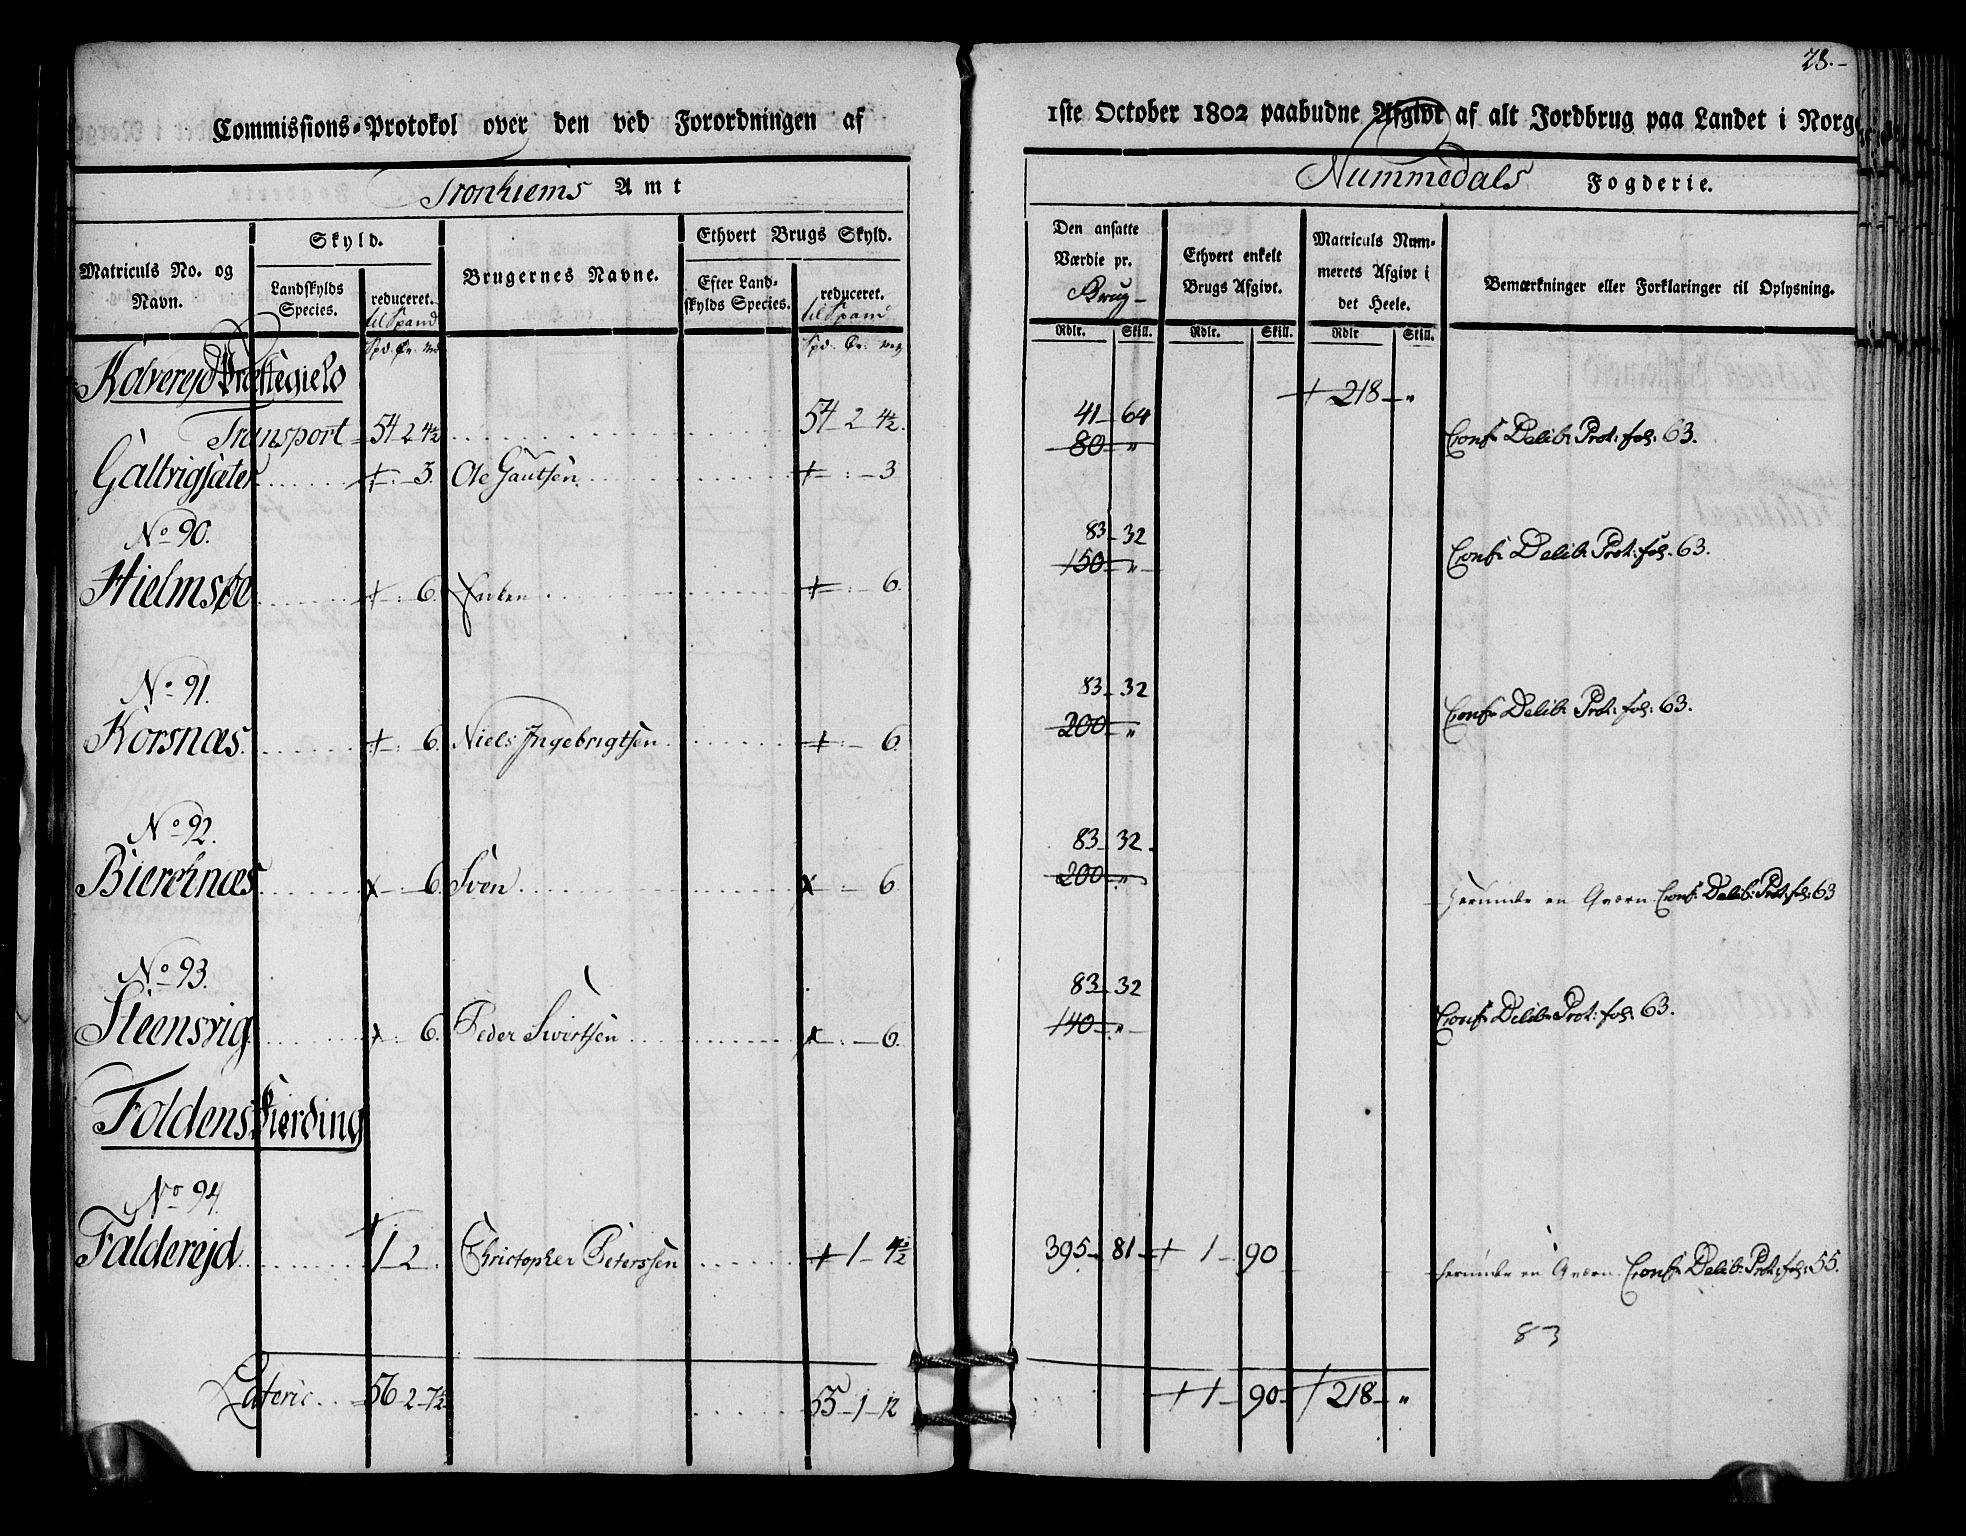 28.
Commissions-Protokol over den ved Forordningen af 1ste October 1802 paabudne Afgivt af alt Jordbrug paa Landet i Norge
Tronhiems Amt
Nummedals Fogderie.
Matriculs No. og Navn.
Skyld.
Landskylds Species.
reduceret.
til Spand
Brugernes Navne.
Ethvert Brugs Skyld.
Efter Landskylds Species.
reduceret.
til Spand
Den ansatte Værdie pr. Brug
Ethvert enkelt Brugs Afgivt.
Matriculs Nummerets Afgivt i det Heele.
Bemærkninger eller Forklaringer til Oplysning.
Rdlr. Skill. Rdlr. Skill. Rdlr Skill.
Kolverejd Præstegield
218 "
Transport 54 2 4½ 54 2 4½
41 64
Galtvigsæter 3. Ole Gautsen 3 80 " Conf: Delib: Prot: fol: 63.
No 90.
83 32
Hielmsöe 6. 6. 150 " Conf: Delib: Prot: fol: 63.
No 91.
83 32
Korsnæs 6. Niels Ingebrigtsen 6. 200 " Conf: Delib: Prot: fol: 63.
No 92.
83 32
Bierknæs 6. Sven 6 200 " herunder en Qværn Conf: Delib: Prot: fol: 63
No 93.
83 32
Steensvig 6. Peder Sivertsen 6. 140 " Conf: Delib: Prot: fol: 63.
Foldens Fierding
No 94.
Falderejd 1 2. Christopher Peterssen 1 4½ 395 81 1 90 herunder en Qværn Conf: Delib: Prot: fol: 55.
83
Lateris 56 2 7½ 55 1 12 1 90 218 "